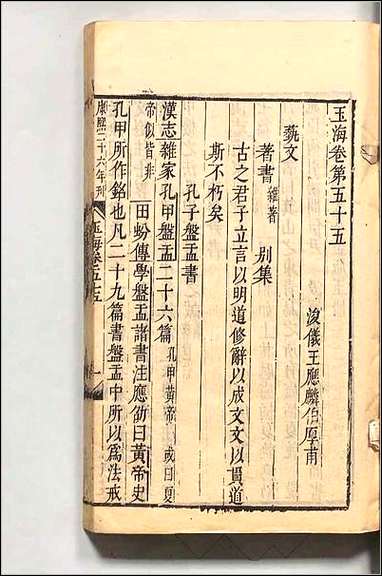 玉海卷第五十五
浚儀王應麟伯厚甫
藝文
著書 雜著 別集
古之君子立言以明道修辭以成文文以貫道
斯不朽矣
孔子盤盂書
漢志雜家孔甲盤盂二十六篇 孔甲黃帝 或曰夏
帝似皆非
田蚡傳學盤盂諸書注應劭曰黃帝史
孔甲所作銘也凡二十九篇書盤盂中所以爲法戒
康熙二十六年刊
玉海卷五十五
一